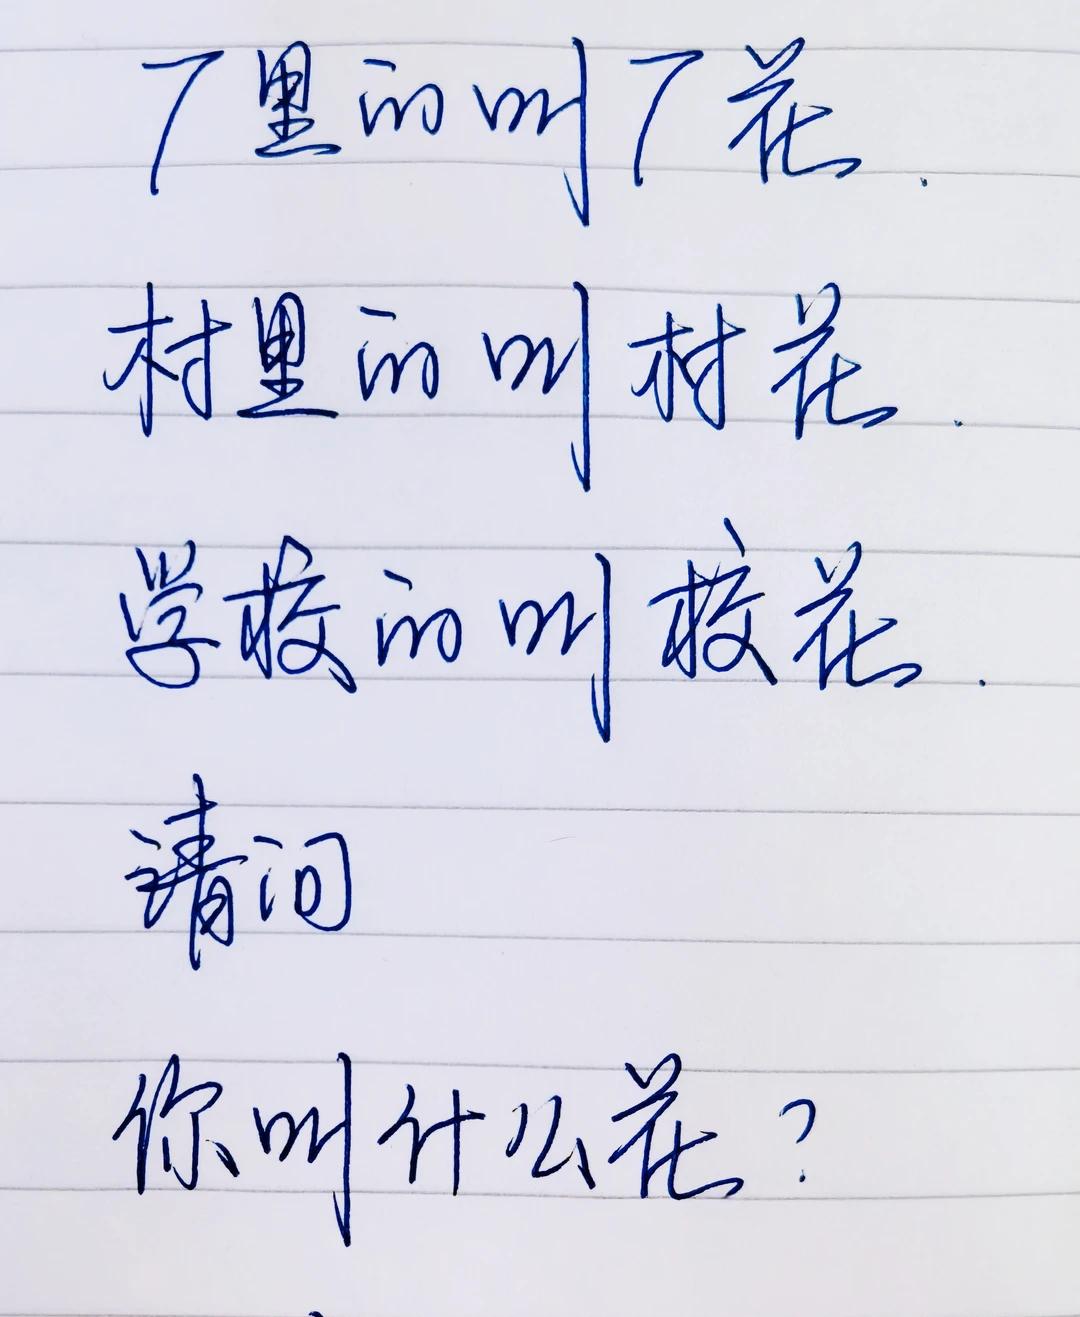 厂里的叫厂花.
村里的叫村花.
学校的叫校花.
请问
你叫什么花?